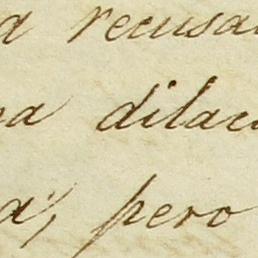 a recusa
na dilac
a, pero